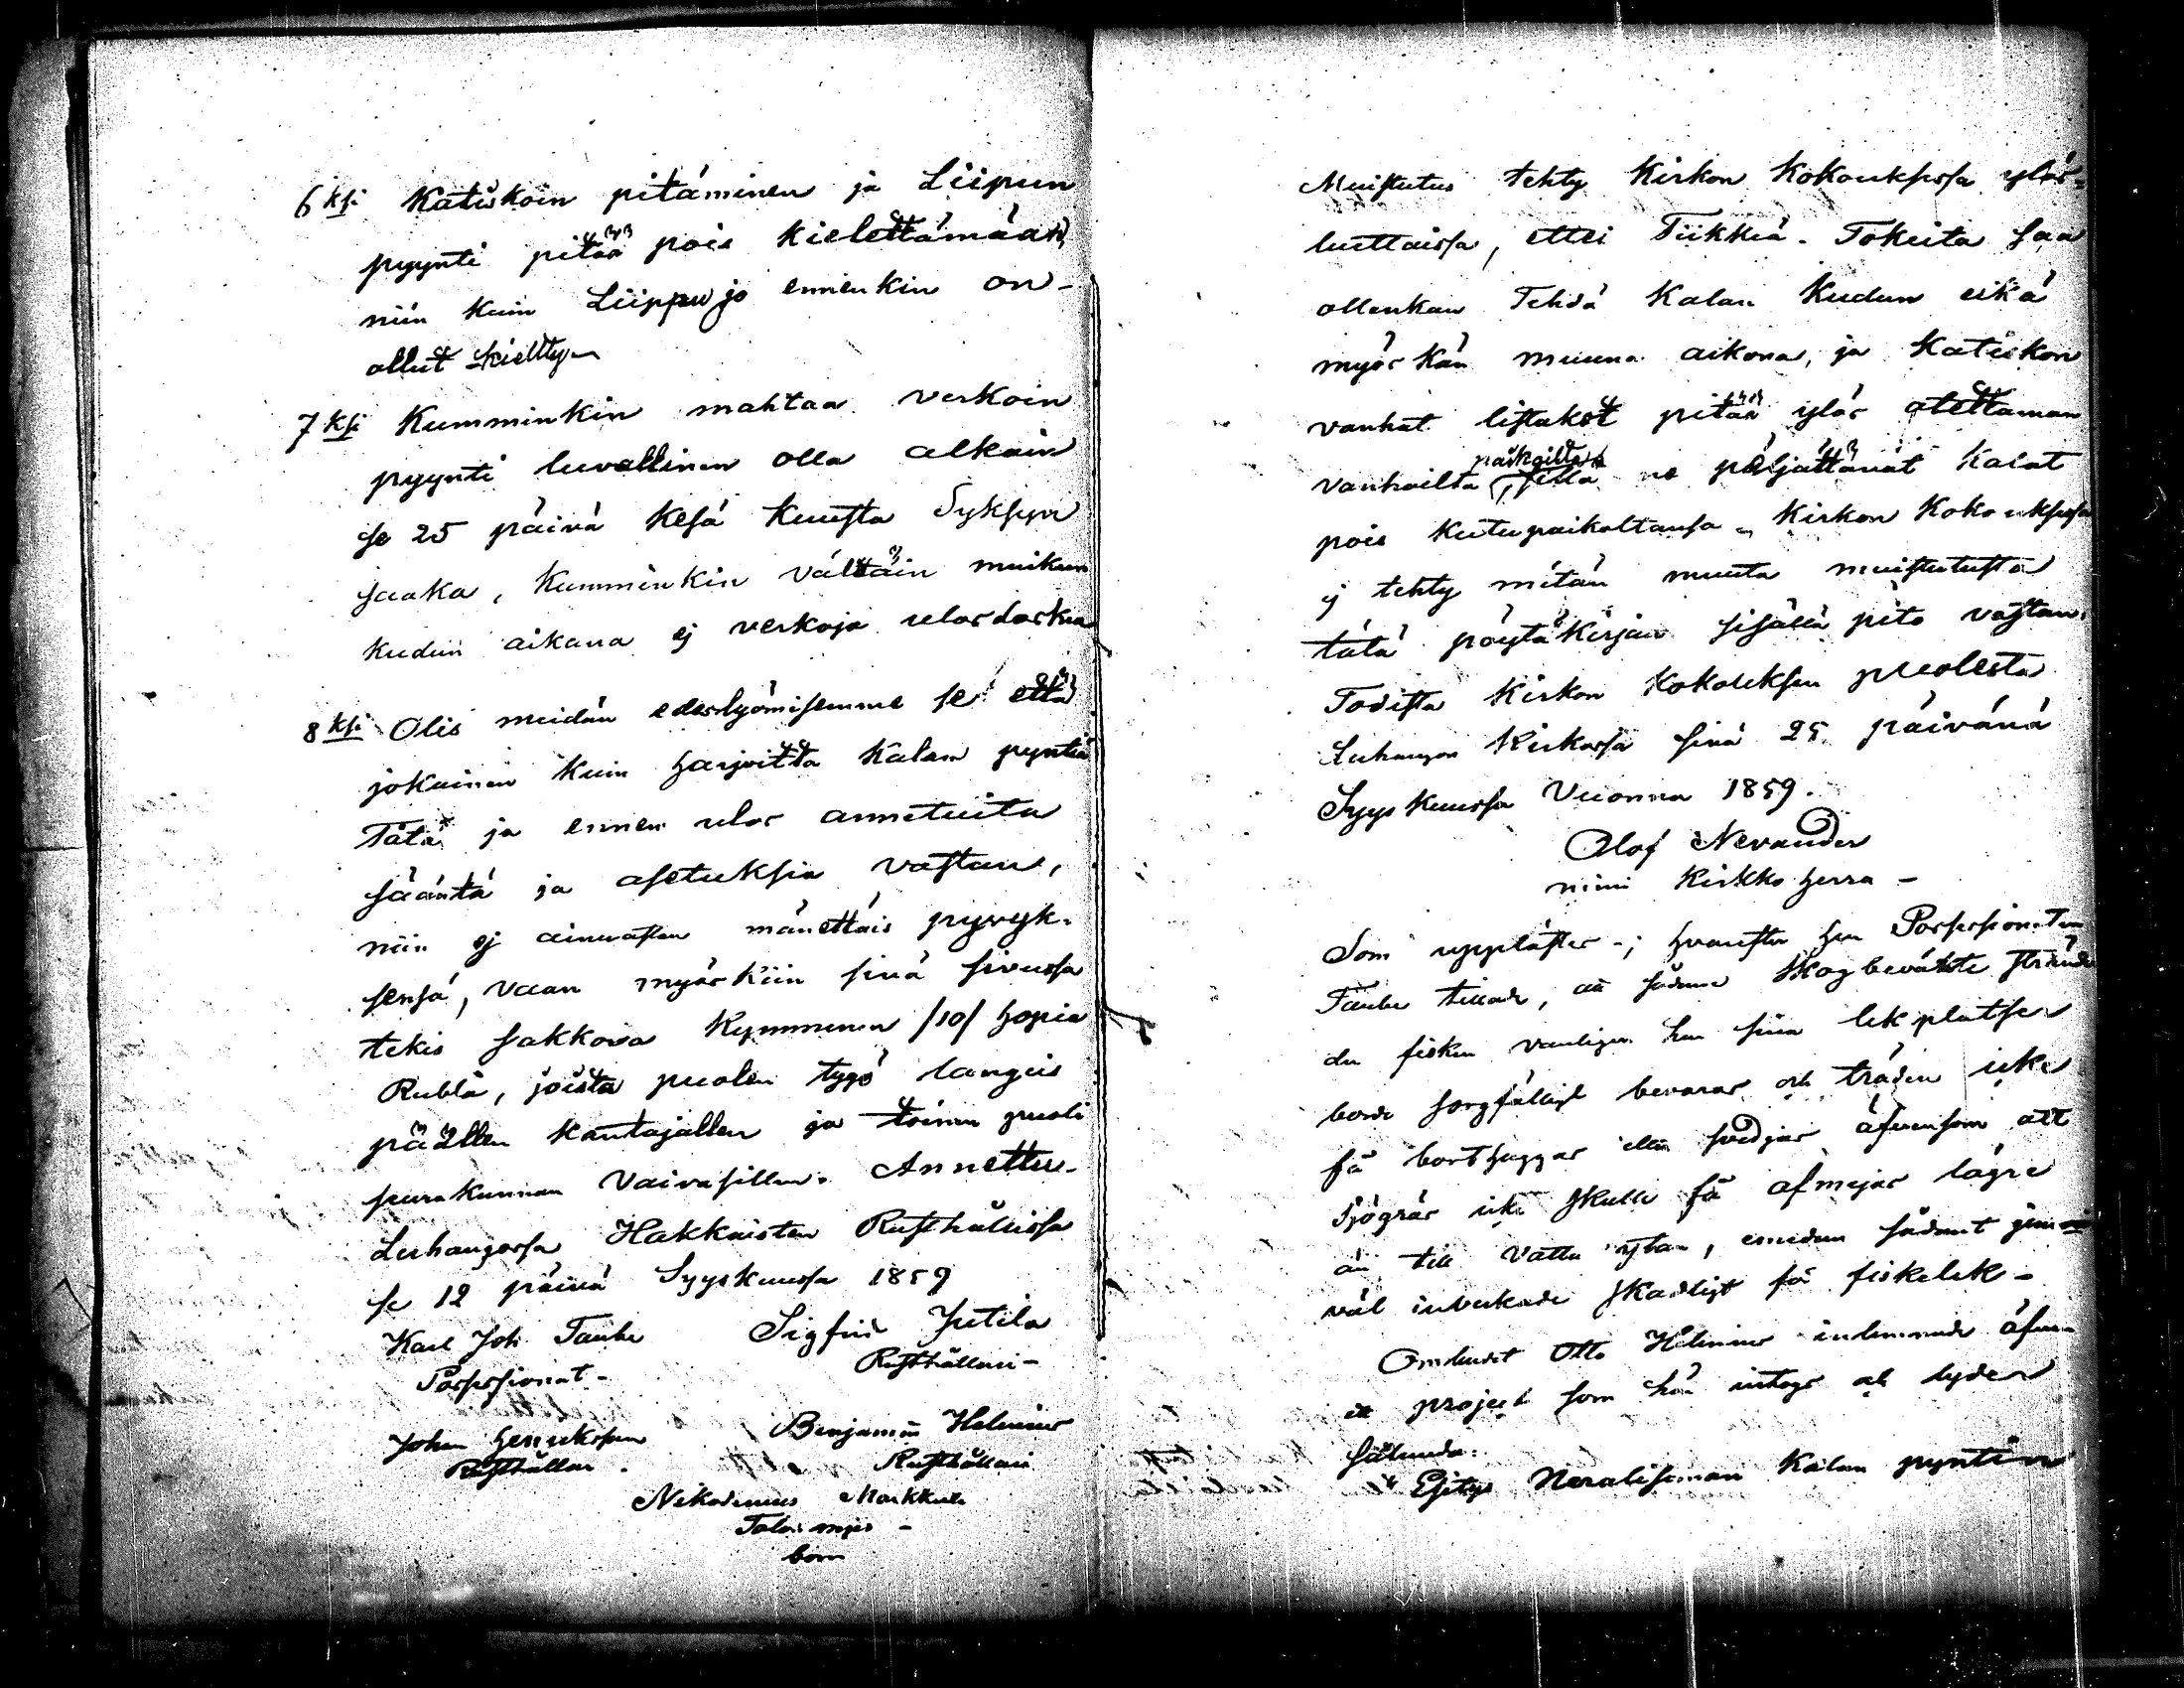 6 ksi Katiskoin pitäminen ja Liipun
pyynti pitää pois kielettämään,
niin kuin Liippu jo ennenkin on
ollut kielty
7 ksi Kumminkin mahtaa verkoin
pyynti luvallinen olla alkain
se 25 päivä Kesä kuusta Syksyyn
saaka, Kumminkin vältäin muikun
kudun aikana ej verkoja ulos laskea
8 ksi Olis meidän edeslyömisemme se että
jokainen kuin harjoitta Kalan pyntiä
Tätä ja ennen ulos annetuita
sääntä ja asetuksia vastan,
niin ej ainuastan mänettäis pyyyk-
sensä, vaan myöskiin sinä sivussa
tekis sakkova Kymmenen /10/ hopia
Rubla, joista puolen tygö langeis
päällen kantajallen ja toinen puoli
seurakunnan Vaivasillen. Annettu
Leuhangossa Hakkaisten Rusthållissa
se 12 päivä Syyskuussa 1859
Karl Joh. Taube Sigfrid Jutila
Possessionat - Rusthållari -
Johan Henriksson Benjamin Helenius
Rusthållar. Rusthållari
Nikodemus Markkula
Talon mies -
bom
Muistutus tehty Kirkon Kokouksessa ylös-
luettaissa, ettei Tiikkiä - Tokeita saa
ollenkan Tehdä Kalan Kudun eikä
myös kän muuna aikona, ja Katiskon
vanhat listakot pitää ylös otettaman
paikoilta
vanhoilta, sillä ne peljättävät kalat
pois kutupaikoltansa - Kirkon Kokouksessa
ej tehty mitän muuta muistutusta
tätä pöytäkirjan sisällä pito vastan.
Todista Kirkon Kokouksen puolesta
Leuhangon Kirkossa sinä 25 päivänä
Syyskuussa Vuonna 1859.
Olof Nevander
nimi Kirkko herra -
Som upplästes -; hvarefter herr Possessionaten
Taube tillade, att sådane skogbeväxte stränder
der fisken vanligen har sina lekplatser
borde sorgfälligt bevaras och träden icke
få borthuggas eller svedjas äfvensom att
Sjögräs icke skulle få afmejas lägre
än till Vattu ytan, emedan sådant
väl inverkade skadligt på fiskelek -
Ombudet Otto Helenius inlemnade äfven
ett project som här intogs och lyder
sålunda:
Esitys Noraliseman Kalan pyntin